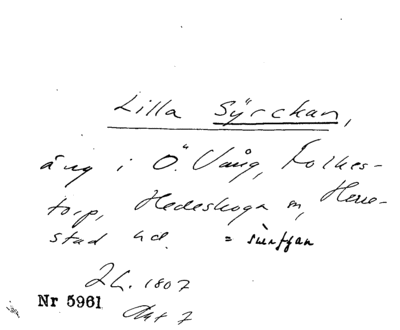 Lilla Syrckan,
äng i Ö. Vång, Folkes-
torp, Hedeskoga sn, Herre-
stad hd. =
Lh. 1807
Nr 5961 Akt 7